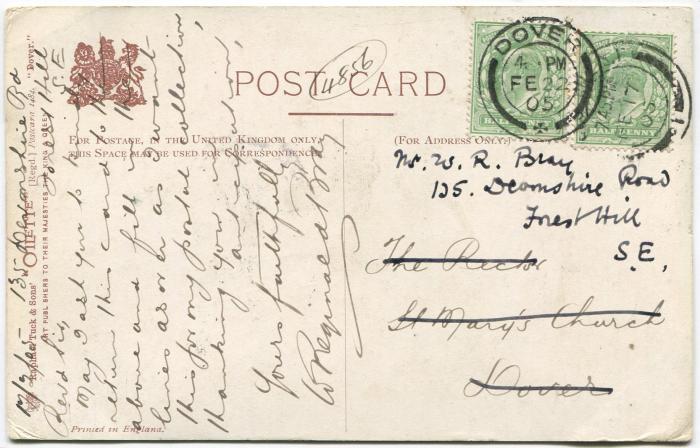 POST CARD
4856
FOR POSTAGE, IN THE UNITED KINGDOM ONLY,
THIS SPACE MAY BE USED FOR CORRESPONDENCE
(FOR ADDRESS ONLY.)
Raphael Tuck & Sons' "OILETTE" [Regd.] Postcard 1484. "Dover."
ART PUBLISHERS TO THEIR MAJESTIES THE KING AND QUEEN
Devonshire Rd
Forest Hill
S.E.
Revd Sir,
May I ask you to kindly
return this card to the
above and fill up the
lines as over as I want
this for my postal collection,
thanking you in
anticipation,
Yours faithfully
W Reginald Bray
Mr. W. R. Bray
135. Devonshire Road
Forest Hill
S.E.
The Rector
St Mary's Church
Dover
DOVER
4 PM
FE 22
05
HALFPENNY
FE 17
HALFPENNY
Printed in England.